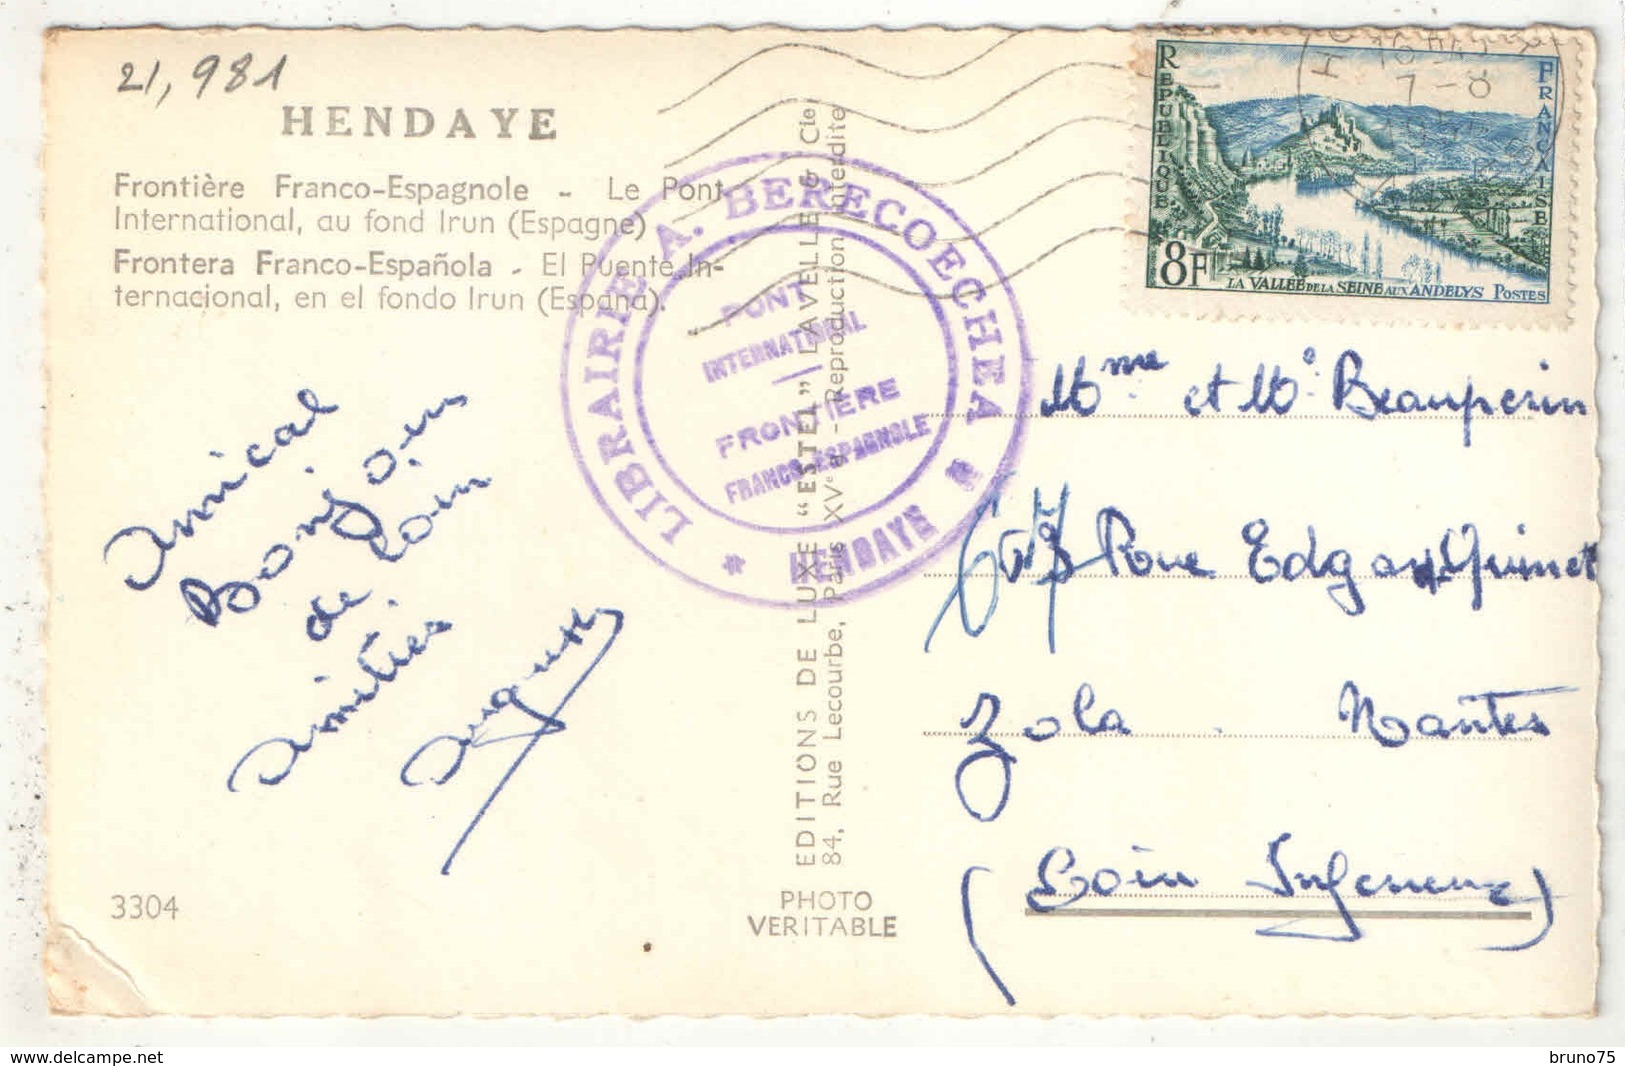 21,981
HENDAYE
Frontière Franco-Espagnole - Le Pont
International, au fond Irun (Espagne)
Frontera Franco-Española - El Puente In-
ternacional, en el fondo Irun (Espana).
Amical
Bonjour
de Loin
Amitiés
3304
EDITIONS DE LUXE "ESTEL" LAVELLE & Cie
84, Rue Lecourbe, Paris XVe - Reproduction Interdite
PHOTO
VERITABLE
LIBRAIRIE A. BERECOECHEA
HENDAYE
PONT
INTERNATIONAL
FRONTIERE
FRANCO-ESPAGNOLE
REPUBLIQUE
FRANCAISE
8F
LA VALLEE DE LA SEINE AUX ANDELYS POSTES
7-8
Mme et Mr Beauperin
Rue Edgar Quinet
Zola. Nantes
(Loire Inférieure)
www.delcampe.net
bruno75